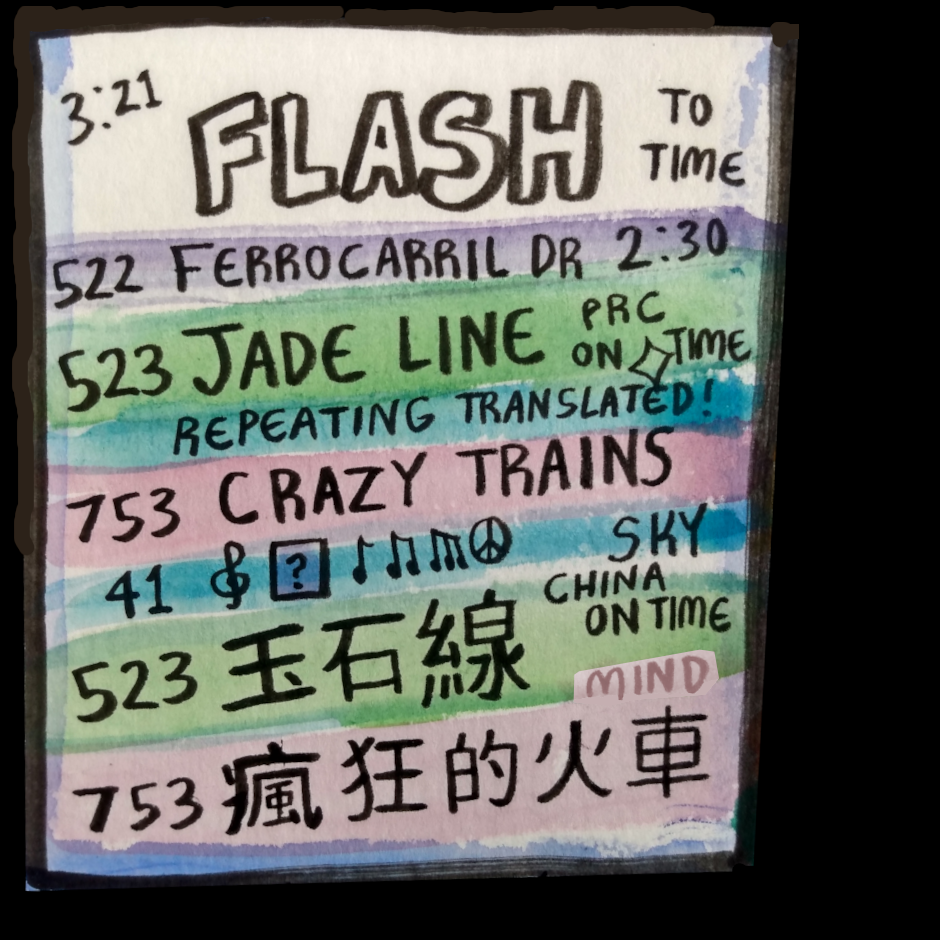 3:21 FLASH TO TIME
522 FERROCARRIL DR 2:30
523 JADE LINE PRC ON TIME
REPEATING TRANSLATED!
753 CRAZY TRAINS
41 ? SKY
523 玉石線 CHINA ON TIME
MIND
753 瘋狂的火車